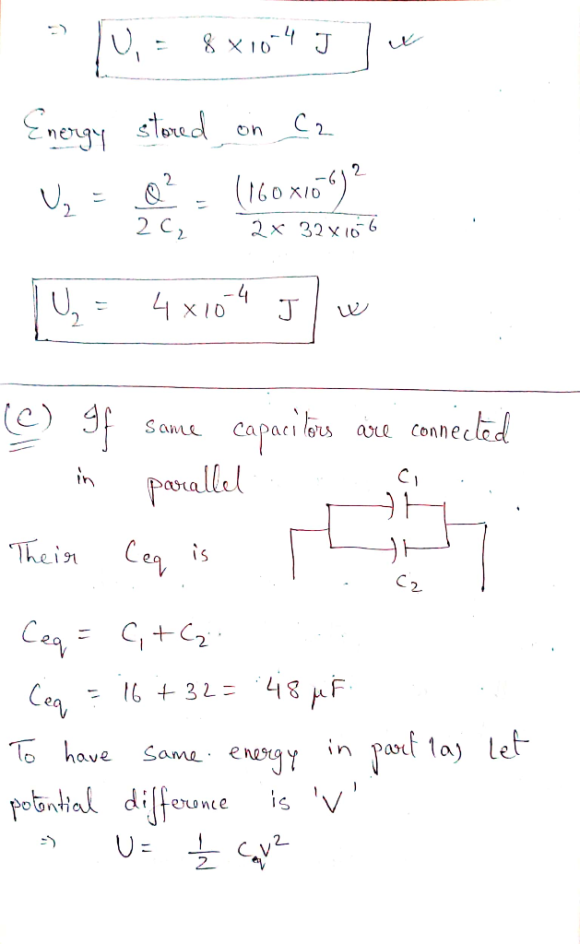 ⇒ U₁ = 8 × 10⁻⁴ J
Energy stored on C₂
U₂ = Q²/2C₂ = (160×10⁻⁶)²/2×32×10⁻⁶
U₂ = 4×10⁻⁴ J
(C) If same capacitors are connected
in parallel
C₁
Their Ceq is
C₂
Ceq = C₁ + C₂.
Ceq = 16 + 32 = 48 μF.
To have same energy in part (a) let
potential difference is 'V'
⇒ U = 1/2 CeqV²